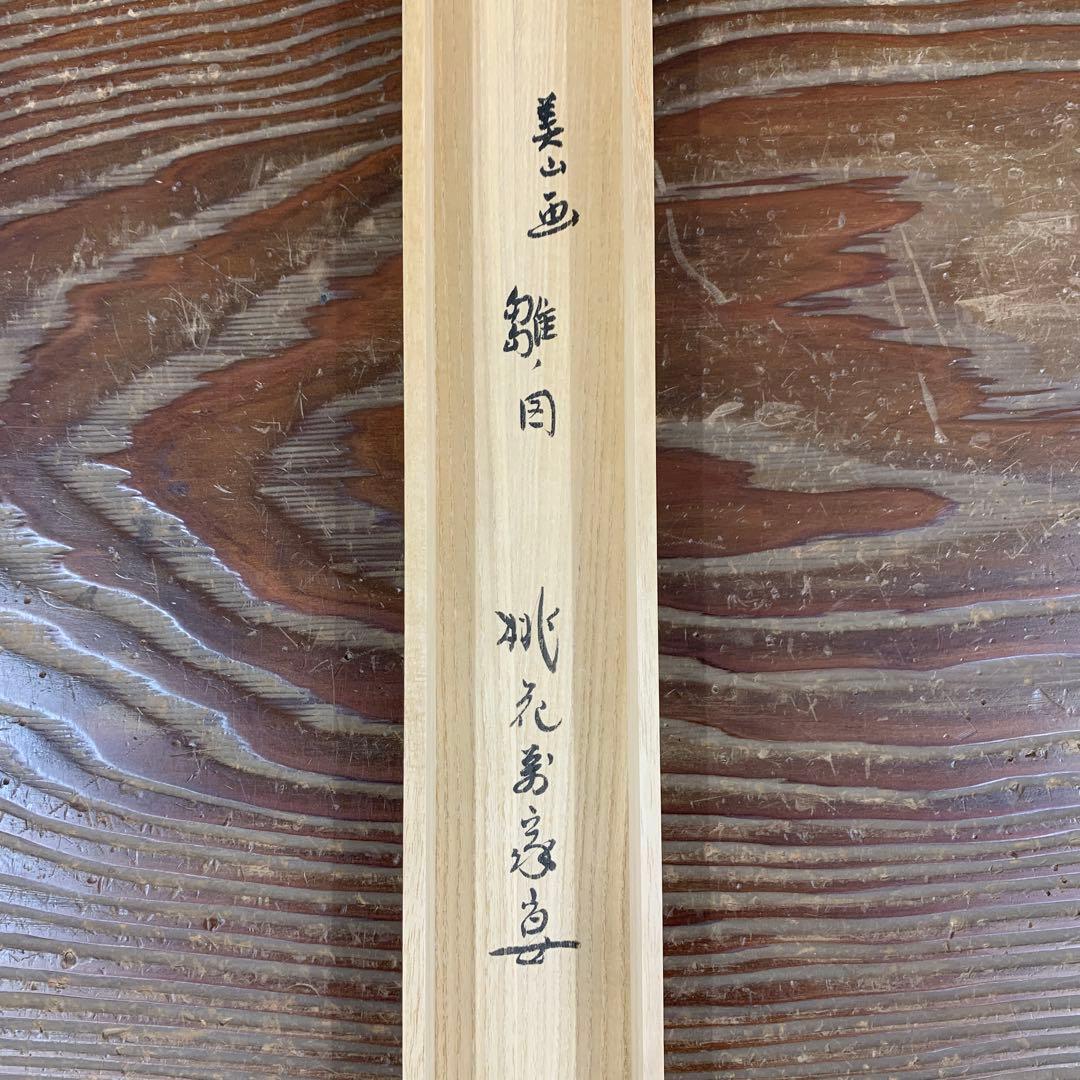 美山画 雛ノ図 桃花萬家